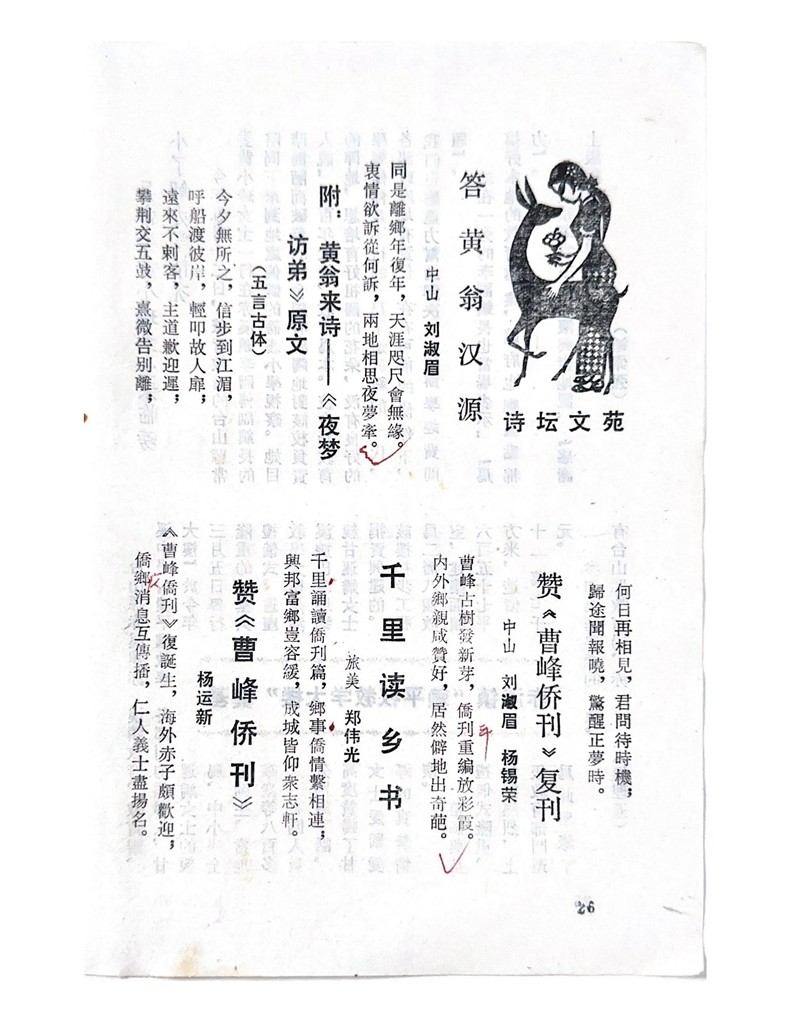 诗坛文苑
答黄翁汉源
中山 刘淑眉
同是離鄉年復年，天涯咫尺會無緣。
衷情欲訴從何訴，兩地相思夜夢牽。
附：黄翁来诗——《夜梦
访弟》原文
（五言古体）
今夕無所之，信步到江湄，
呼船渡彼岸，輕叩故人扉；
遠來不刺客，主道歉迎遲；
攀荆交五鼓，熹微告别離；
何日再相見，君問待時機；
歸途聞報曉，驚醒正夢時。
赞《曹峰侨刊》复刊
中山 刘淑眉 杨锡荣
曹峰古樹發新芽，僑刊重編放彩霞。
内外鄉親咸贊好，居然僻地出奇葩。
千里读乡书
旅美 郑伟光
千里誦讀僑刊篇，鄉事僑情繫相連；
興邦富鄉豈容緩，成城皆仰衆志軒。
赞《曹峰侨刊》
杨运新
《曹峰侨刊》復誕生，海外赤子頗歡迎；
僑鄉消息互傳播，仁人義士盡揚名。
26